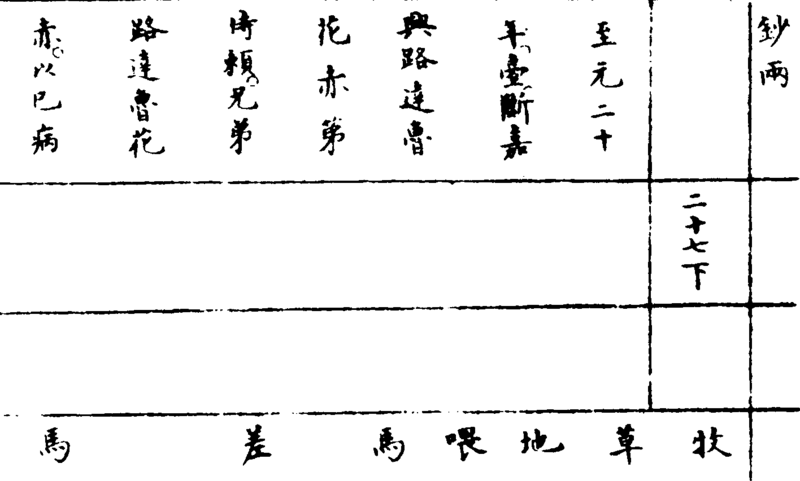 鈔兩
至元二十
年斷嘉
興路達魯
花赤第
倚頼兄弟
路達魯花
赤以巳病
二十七下
牧草地喂馬
差
馬